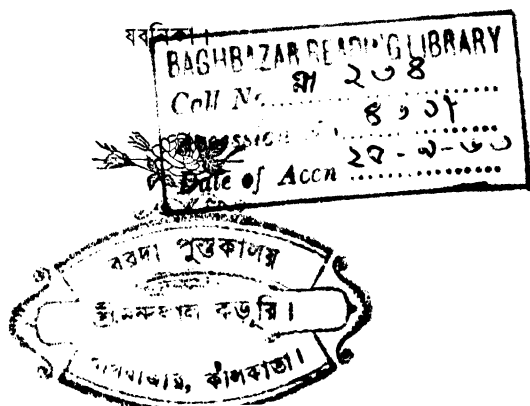 যবনিকা।
BAGHBAZAR READING LIBRARY
Call No. না ২৩৪
Accession No.
Date of Accn
বরদা পুস্তকালয়
কড়ুরি।
বাগবাজার, কলিকাতা।